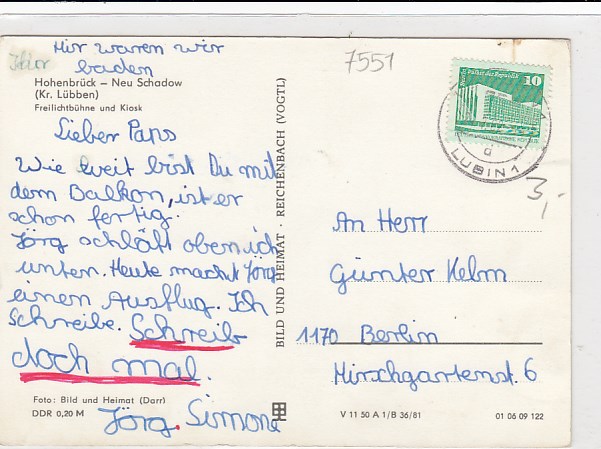 Hier waren wir
baden
Hier
Hohenbrück – Neu Schadow
(Kr. Lübben)
Freilichtbühne und Kiosk
Lieber Paps
Wie weit bist Du mit
dem Balkon, ist er
schon fertig.
Jörg schläft oben ich
unten. Heute macht Jörg
einen Ausflug. Ich
schreibe. Schreib
doch mal.
Foto: Bild und Heimat (Darr)
DDR 0,20 M
Jörg. Simone
BILD UND HEIMAT · REICHENBACH (VOGTL)
7551
10
LUBIN 1
d
3,-
An Herr
Günter Kelm
1170 Berlin
Hirschgartenst. 6
V 11 50 A 1/B 36/81
01 06 09 122